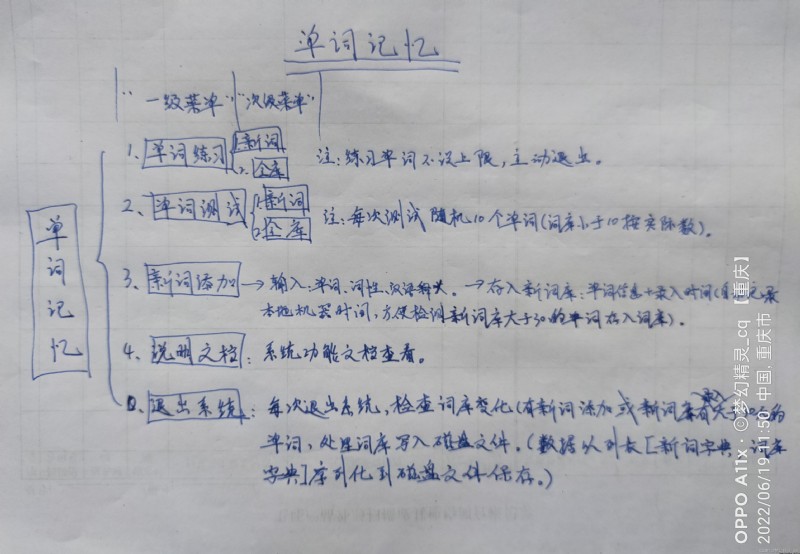 单词记忆
"一级菜单" "次级菜单"
1、单词练习 1.新词 2.全库 注:练习单词不设上限,主动退出。
2、单词测试 1.新词 2.全库 注:每次测试随机10个单词(词库小于10按实际数)。
单词记忆
3、新词添加 → 输入:单词、词性、汉语释义。→存入新词库:单词信息+录入时间(记录
本地机器时间,方便检测新词库大于30的单词存入词库)。
4、说明文档:系统功能文档查看。
0、退出系统:每次退出系统,检查词库变化(有新词添加或新词库有大于的
单词,处理词库写入磁盘文件。(数据以列表[新词字典,词库
字典]序列化到磁盘文件保存。)
OPPO A11x · ©梦幻精灵_cq【重庆】
2022/06/19 11:50 中国, 重庆市